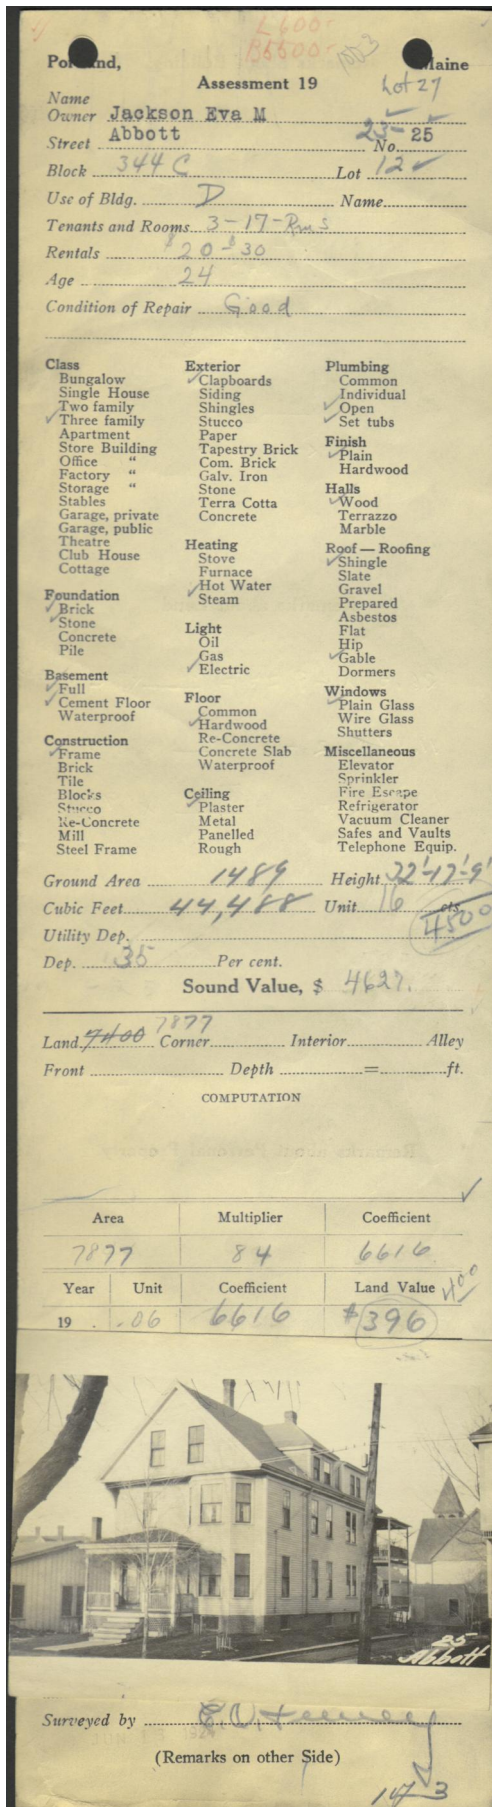 L600-
B5500-
1003
Portland, Maine
Assessment 19
Lot 27
Name
Owner Jackson Eva M
Street Abbott No. 23-25
Block 344 C Lot 12
Use of Bldg. D Name
Tenants and Rooms 3-17-Rms
Rentals $20-$30
Age 24
Condition of Repair Good
Class
Bungalow
Single House
Two family
Three family
Apartment
Store Building
Office "
Factory "
Storage "
Stables
Garage, private
Garage, public
Theatre
Club House
Cottage
Foundation
Brick
Stone
Concrete
Pile
Basement
Full
Cement Floor
Waterproof
Construction
Frame
Brick
Tile
Blocks
Stucco
Re-Concrete
Mill
Steel Frame
Exterior
Clapboards
Siding
Shingles
Stucco
Paper
Tapestry Brick
Com. Brick
Galv. Iron
Stone
Terra Cotta
Concrete
Heating
Stove
Furnace
Hot Water
Steam
Light
Oil
Gas
Electric
Floor
Common
Hardwood
Re-Concrete
Concrete Slab
Waterproof
Ceiling
Plaster
Metal
Panelled
Rough
Plumbing
Common
Individual
Open
Set tubs
Finish
Plain
Hardwood
Halls
Wood
Terrazzo
Marble
Roof — Roofing
Shingle
Slate
Gravel
Prepared
Asbestos
Flat
Hip
Gable
Dormers
Windows
Plain Glass
Wire Glass
Shutters
Miscellaneous
Elevator
Sprinkler
Fire Escape
Refrigerator
Vacuum Cleaner
Safes and Vaults
Telephone Equip.
Ground Area 1489 Height
Cubic Feet 44,488 Unit 16 cts.
4500
Utility Dep.
Dep. 35 Per cent.
Sound Value, $ 4627.
7877
Land 7400 Corner Interior Alley
Front Depth = ft.
COMPUTATION
Area Multiplier Coefficient
7877 84 6616
Year Unit Coefficient Land Value 400
19 .06 6616 $396
25
Abbott
Surveyed by
(Remarks on other Side)